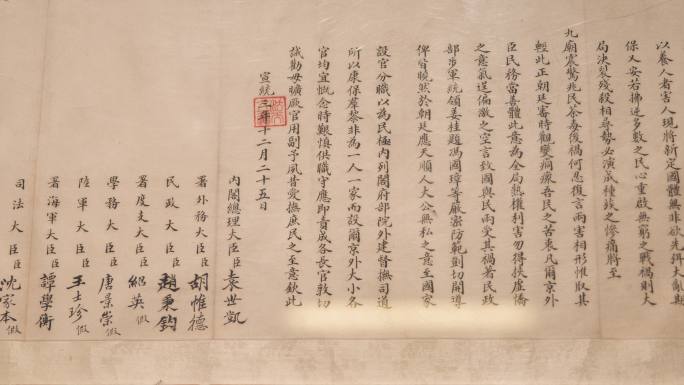 以養人者害人現將新定國體無非欲先弭大亂期
保乂安若拂逆多數之民心重啟無窮之戰禍則大
局決裂殘殺相尋勢必演成種族之慘痛將至
九廟震驚兆民荼毒後禍何忍復言兩害相形惟取其
輕此正朝廷審時觀變痌瘝吾民之苦衷凡爾京外
臣民務當善體此意為全局熟權利害勿得挾虛憍
之意氣逞偏激之空言致國與民兩受其禍著民政
部步軍統領姜桂題馮國璋等嚴密防範剴切開導
俾皆曉然於朝廷應天順人大公無私之意至國家
設官分職以為民極內列閣府部院外建督撫司道
所以康保羣黎非為一人一家而設爾京外大小各
官均宜慨念時艱慎供職守應即責成各長官敦切
誡勸毋曠厥官用副予夙昔愛撫庶民之至意欽此
宣統三年十二月二十五日
內閣總理大臣臣袁世凱
署外務大臣臣胡惟德
民政大臣臣趙秉鈞
署度支大臣臣紹英假
學務大臣臣唐景崇假
陸軍大臣臣王士珍假
署海軍大臣臣譚學衡
司法大臣臣沈家本假